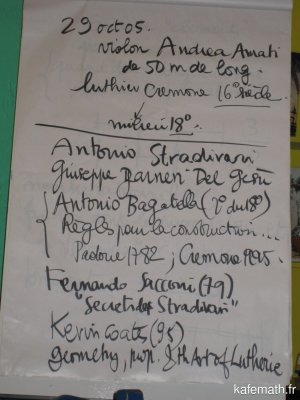 29 oct 05.
violon Andrea Amati
de 50 m de long.
luthier Cremone 16° siècle
milieu 18°
Antonio Stradivari
Giuseppe Guarneri Del Gesù
Antonio Bagatella
Règles pour la construction...
Padoue 1782 ; Cremone 1995.
Fernando Sacconi (79)
"Secrets de Stradivari"
Kevin Coates (95)
geometry, prop. & th Art of Lutherie
kafemath.fr